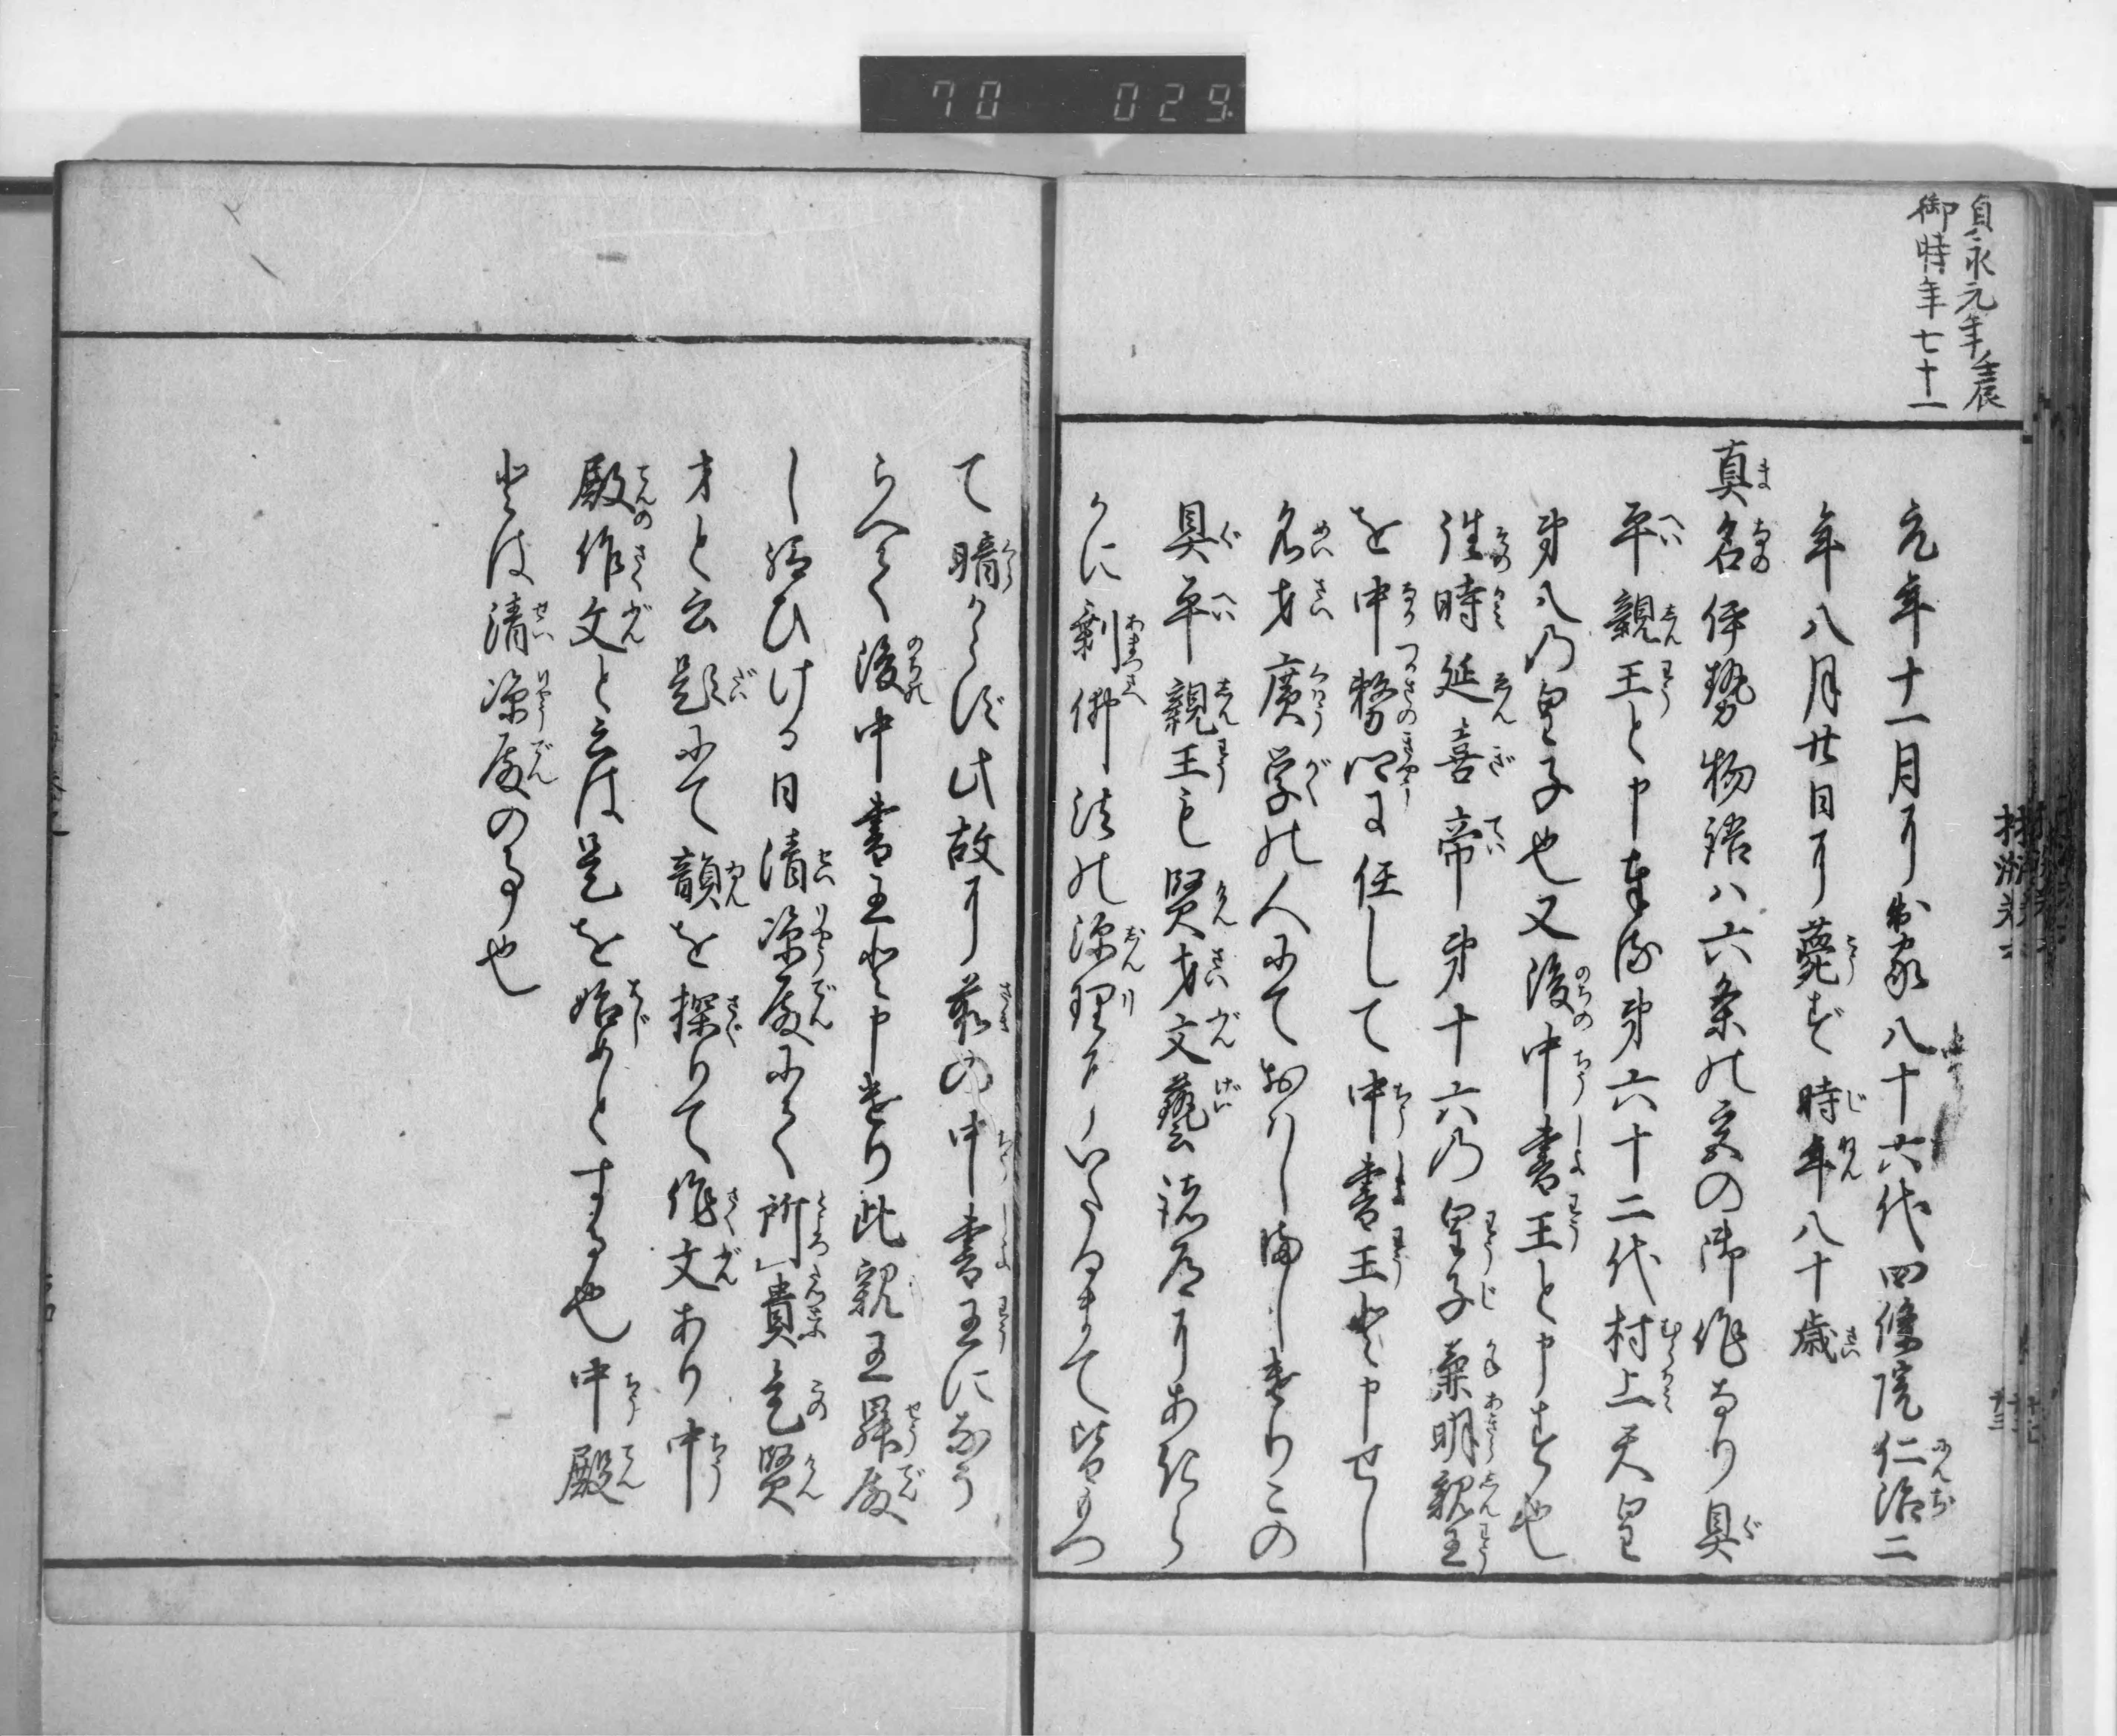 貞永元年壬辰
御時年七十一
元年十一月ニ出家八十六代四條院仁治二
年八月廿日ニ薨ず時年八十歳
真名伊勢物語ハ六条の宮の御作なり具
平親王と申奉る第六十二代村上天皇
第八の皇子也又後中書王と申す也
往時延喜帝第十六の皇子兼明親王
を中務卿に任して中書王と申せし
名才廣学の人にておハし満しけりこの
具平親王も賢才文藝諸道にあきら
かに剰佛法の深理にいたるまて皆もつ
て暗からず此故に前の中書王になそ
らへて後中書王と申けり此親王昇殿
し給ひける日清凉殿にて所貴是賢
才と云題にて韻を探りて作文あり中
殿作文と云は是を始めとする也中殿
とは清凉殿の事也
70 029